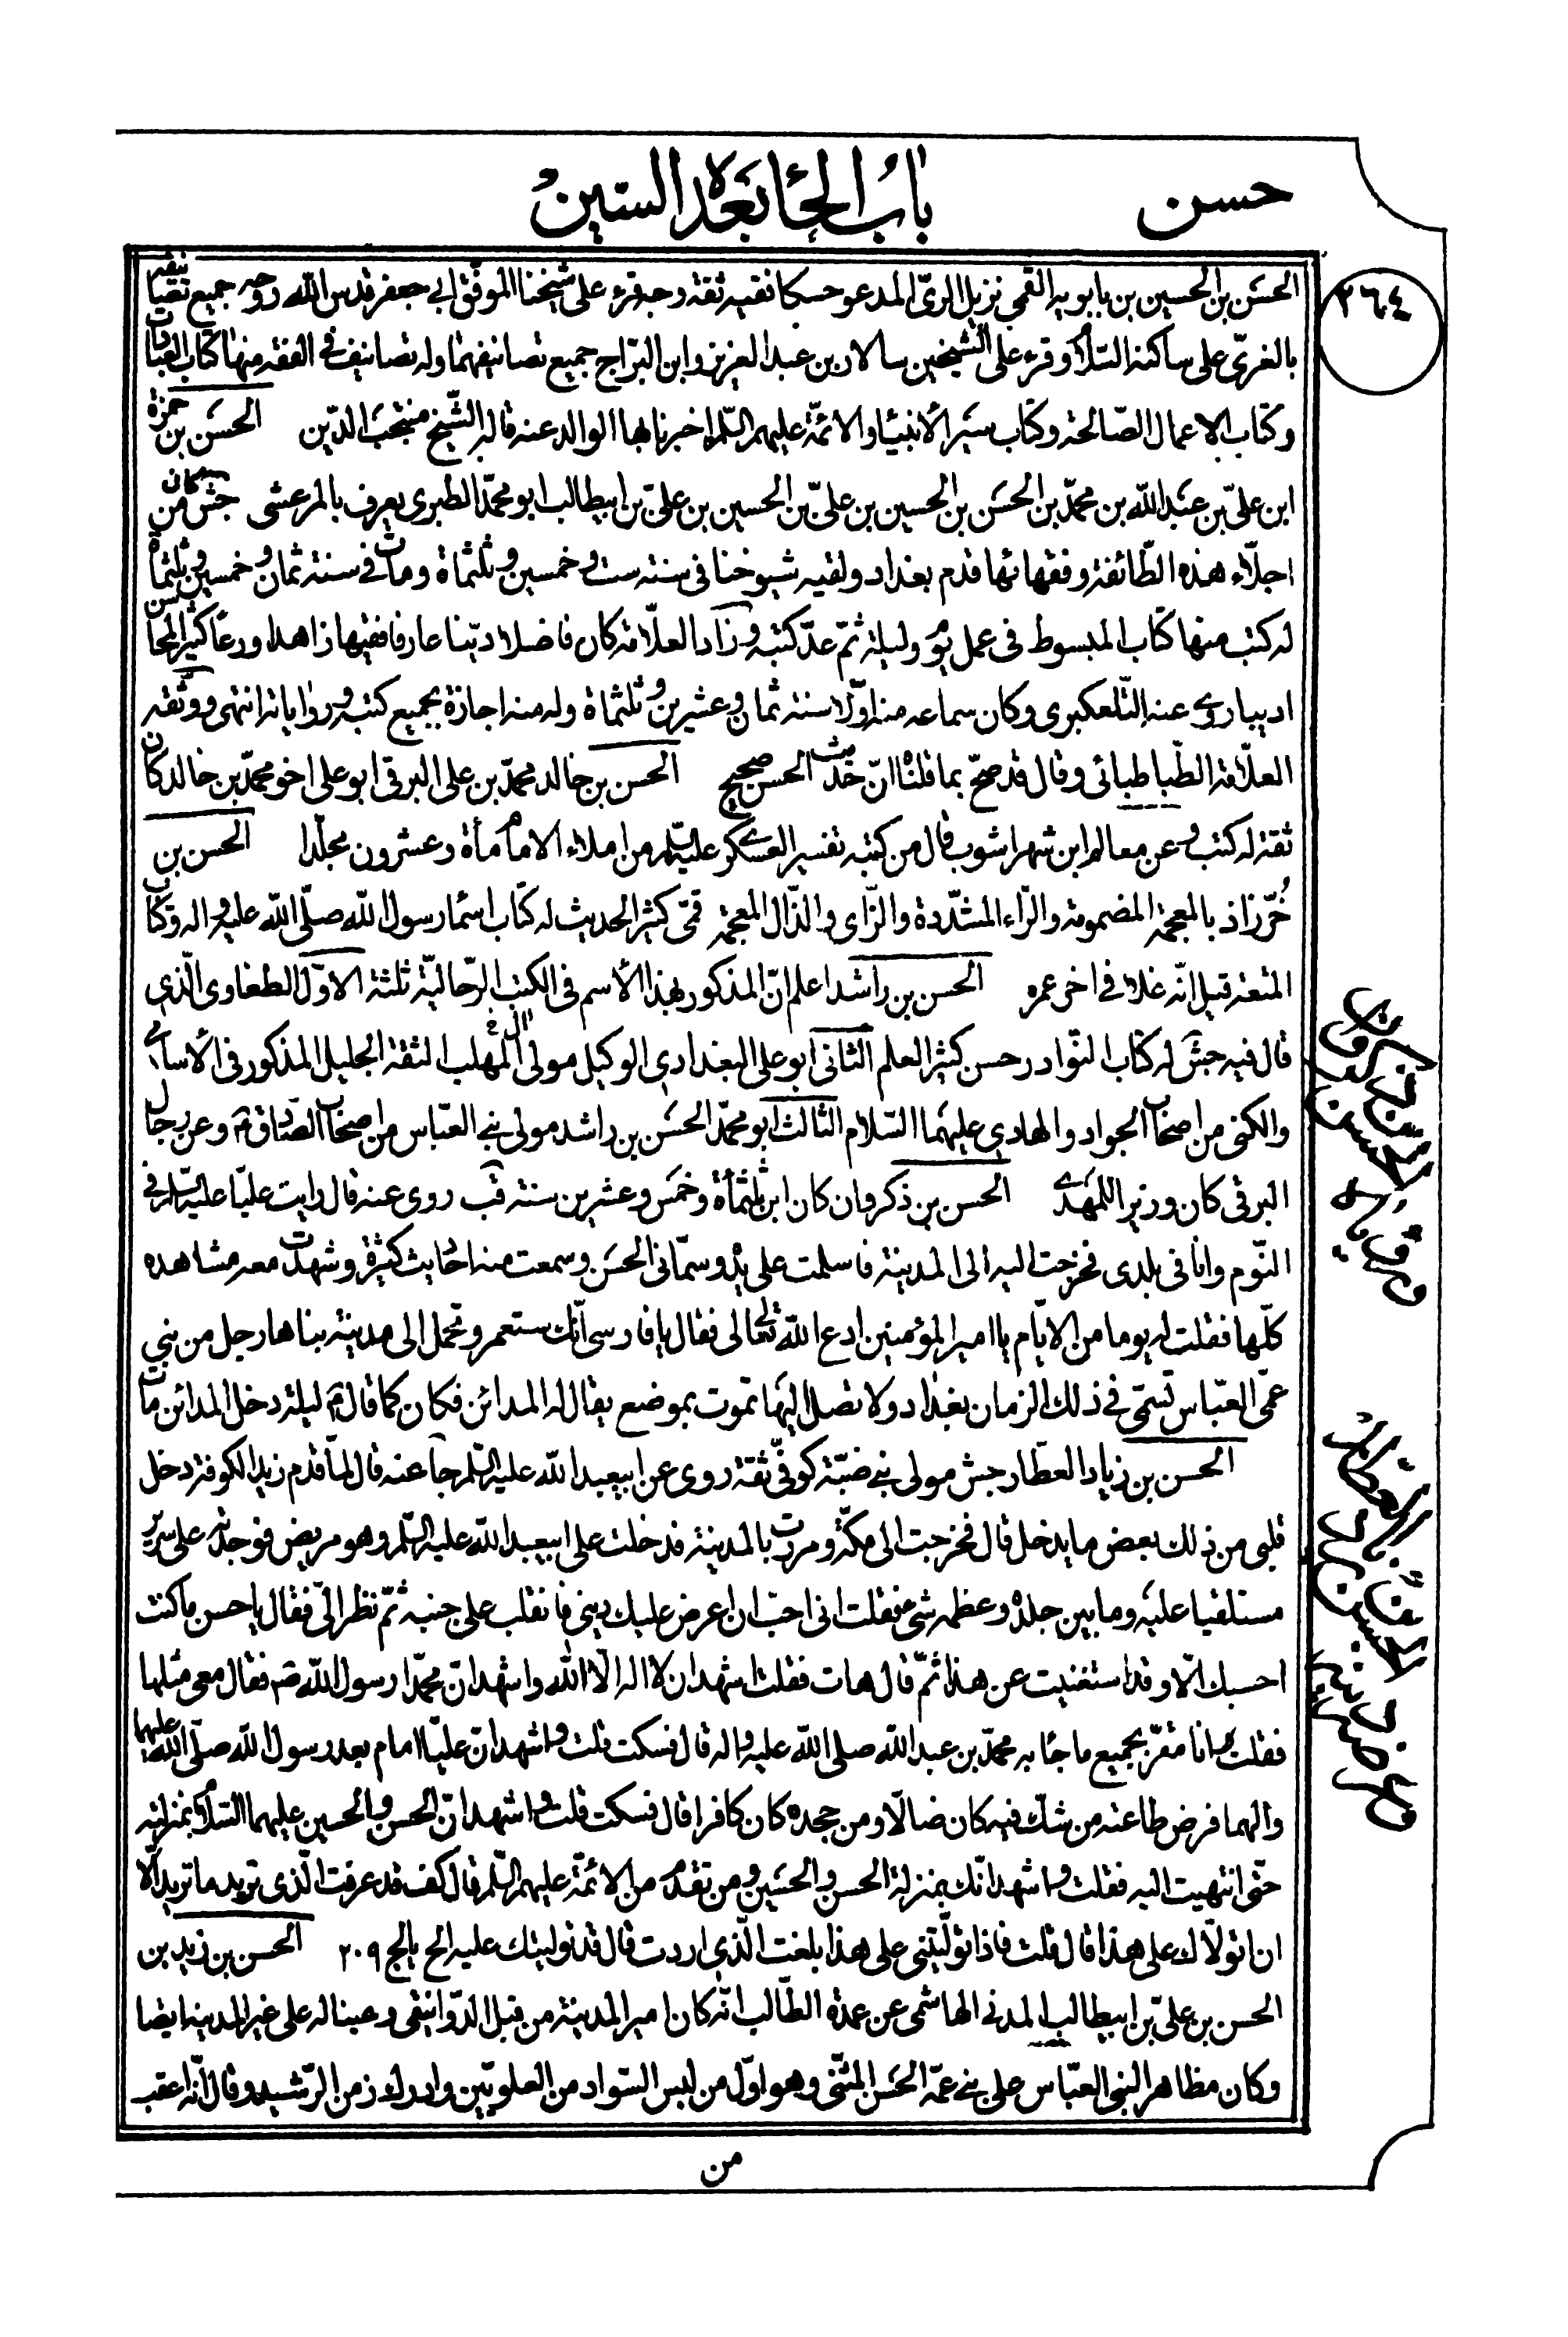 حسن
باب الحاء بعده السين
٢٦٤
الحسن بن الحسين بن بابويه القمي نزيل الري المدعو حسكا فقيه ثقة وجه قرء على شيخنا الموفق ابي جعفر قدس الله روحه جميع تصانيفه
بالغري على ساكنه السلام وقرء على الشيخين سالار بن عبد العزيز وابن البراج جميع تصانيفهما وله تصانيف في الفقه منها كتاب العبادات
وكتاب الاعمال الصالحة وكتاب سير الأنبياء والائمة عليهم السلم اخبرنا بها الوالد عنه قاله الشيخ منتجب الدين الحسن بن حمزة
ابن علي بن عبد الله بن محمد بن الحسن بن الحسين بن علي بن الحسين بن علي بن ابيطالب ابو محمد الطبري يعرف بالمرعشي جش كان من
اجلاء هذه الطائفة وفقهائها قدم بغداد ولقيه شيوخنا في سنة ست وخمسين وثلثماة ومات في سنة ثمان وخمسين وثلثماة
له كتب منها كتاب المبسوط في عمل يوم وليلة ثم عد كتبه وزاد العلامة كان فاضلا دينا عارفا فقيها زاهدا ورعا كثير المحاسن
اديبا روى عنه التلعكبري وكان سماعه منه اولا سنة ثمان وعشرين وثلثماة وله منه اجازة بجميع كتبه ورواياته انتهى ووثقه
العلامة الطباطبائي وقال قد صح بما قلناه ان حديث الحسن صحيح الحسن بن خالد محمد بن علي البرقي ابو علي اخو محمد بن خالد كان
ثقة له كتب وعن معالم ابن شهراشوب قال من كتبه تفسير العسكري عليه السلم من املاء الامام مأة وعشرون مجلدا الحسن بن
خرزاذ بالمعجمة المضمومة والراء المشددة والزاى والذال المعجمة قمي كثير الحديث له كتاب اسماء رسول الله صلى الله عليه واله وكتاب
المتعة قيل انه غلا في اخر عمره الحسن بن راشد اعلم ان المذكور بهذا الأسم في الكتب الرجالية ثلثة الاول الطفاوي الذي
قال فيه جش له كتاب النوادر حسن كثير العلم الثاني ابو علي البغدادي الوكيل مولى ال المهلب الثقة الجليل المذكور في الأسامي
والكنى من اصحاب الجواد والهادي عليهما السلام الثالث ابو محمد الحسن بن راشد مولى بني العباس من اصحاب الصادق ع وعن رجال
البرقي كان وزير المهدي الحسن بن ذكروان كان ابن ثلثمأة وخمس وعشرين سنة قب روى عنه قال رايت عليا عليه السلم في
النوم وانا في بلدي فخرجت اليه الى المدينة فاسلمت على يده وسماني الحسن وسمعت منه احاديث كثيرة وشهدت معه مشاهده
كلها فقلت له يوما من الايام يا امير المؤمنين ادع الله تعالى لي فقال يا فارسي انك ستعمر وتحمل الى مدينة بناها رجل من بني
عمي العباس تسمى في ذلك الزمان بغداد ولا تصل اليها تموت بموضع يقال له المدائن فكان كما قال ع ليلة دخل المدائن مات
الحسن بن زياد العطار جش مولى بني ضبة كوفي ثقة روى عن ابيعبد الله عليه السلم جا عنه قال لما قدم زيد الكوفة دخل
قلبي من ذلك بعض ما يدخل قال فخرجت الى مكة ومررت بالمدينة فدخلت على ابيعبد الله عليه السلم وهو مريض فوجدته على سرير
مستلقيا عليه وما بين جلده وعظمه شئ فقلت اني احب ان اعرض عليك ديني فانقلب على جنبه ثم نظر الي فقال يا حسن ما كنت
احسبك الا وقد استغنيت عن هذا ثم قال هات فقلت اشهد ان لا اله الا الله واشهد ان محمدا رسول الله ص فقال معي مثلها
فقلت وانا مقر بجميع ما جاء به محمد بن عبد الله صلى الله عليه واله قال فسكت قلت واشهد ان عليا امام بعد رسول الله صلى الله عليهما
والهما فرض طاعته من شك فيه كان ضالا ومن جحده كان كافرا قال فسكت قلت واشهد ان الحسن والحسين عليهما السلام بمنزلته
حتى انتهيت اليه فقلت واشهد انك بمنزلة الحسن والحسين ومن تقدم من الائمة عليهم السلم قال كف قد عرفت الذي تريد ما تريد الا
ان اتولاك على هذا قال قلت فاذا توليتني على هذا بلغت الذي اردت قال قد توليتك عليه الخ يا لج ٢٠٩ الحسن بن زيد بن
الحسن بن علي بن ابيطالب المدني الهاشمي عن عمدة الطالب انه كان امير المدينة من قبل الدوانيقي وعينا له على غير المدينة ايضا
وكان مظاهرا لبني العباس على بني عمه الحسن المثنى وهو اول من لبس السواد من العلويين وادرك زمن الرشيد وقال انه اعقب
من
الحسن بن ذكروان